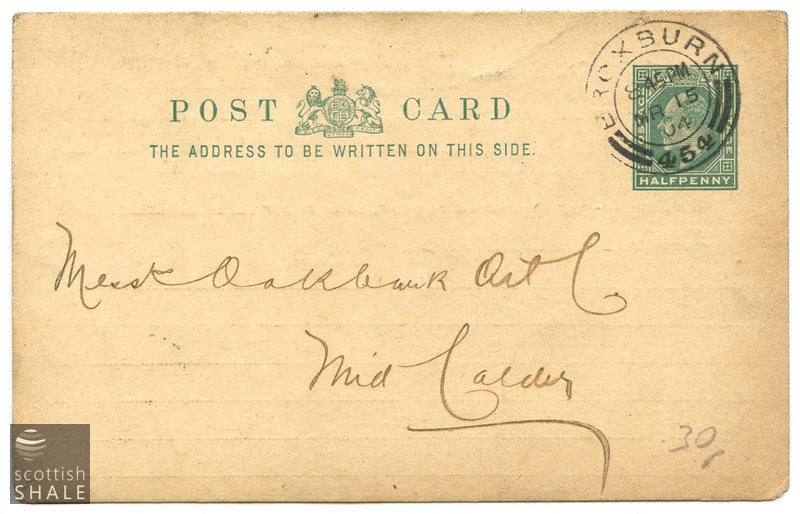 POST CARD
THE ADDRESS TO BE WRITTEN ON THIS SIDE.
BROXBURN
8.45 PM
MR 15
04
454
HALFPENNY
Messrs Oakbank Oil Co.
Mid Calder
30
scottish
SHALE